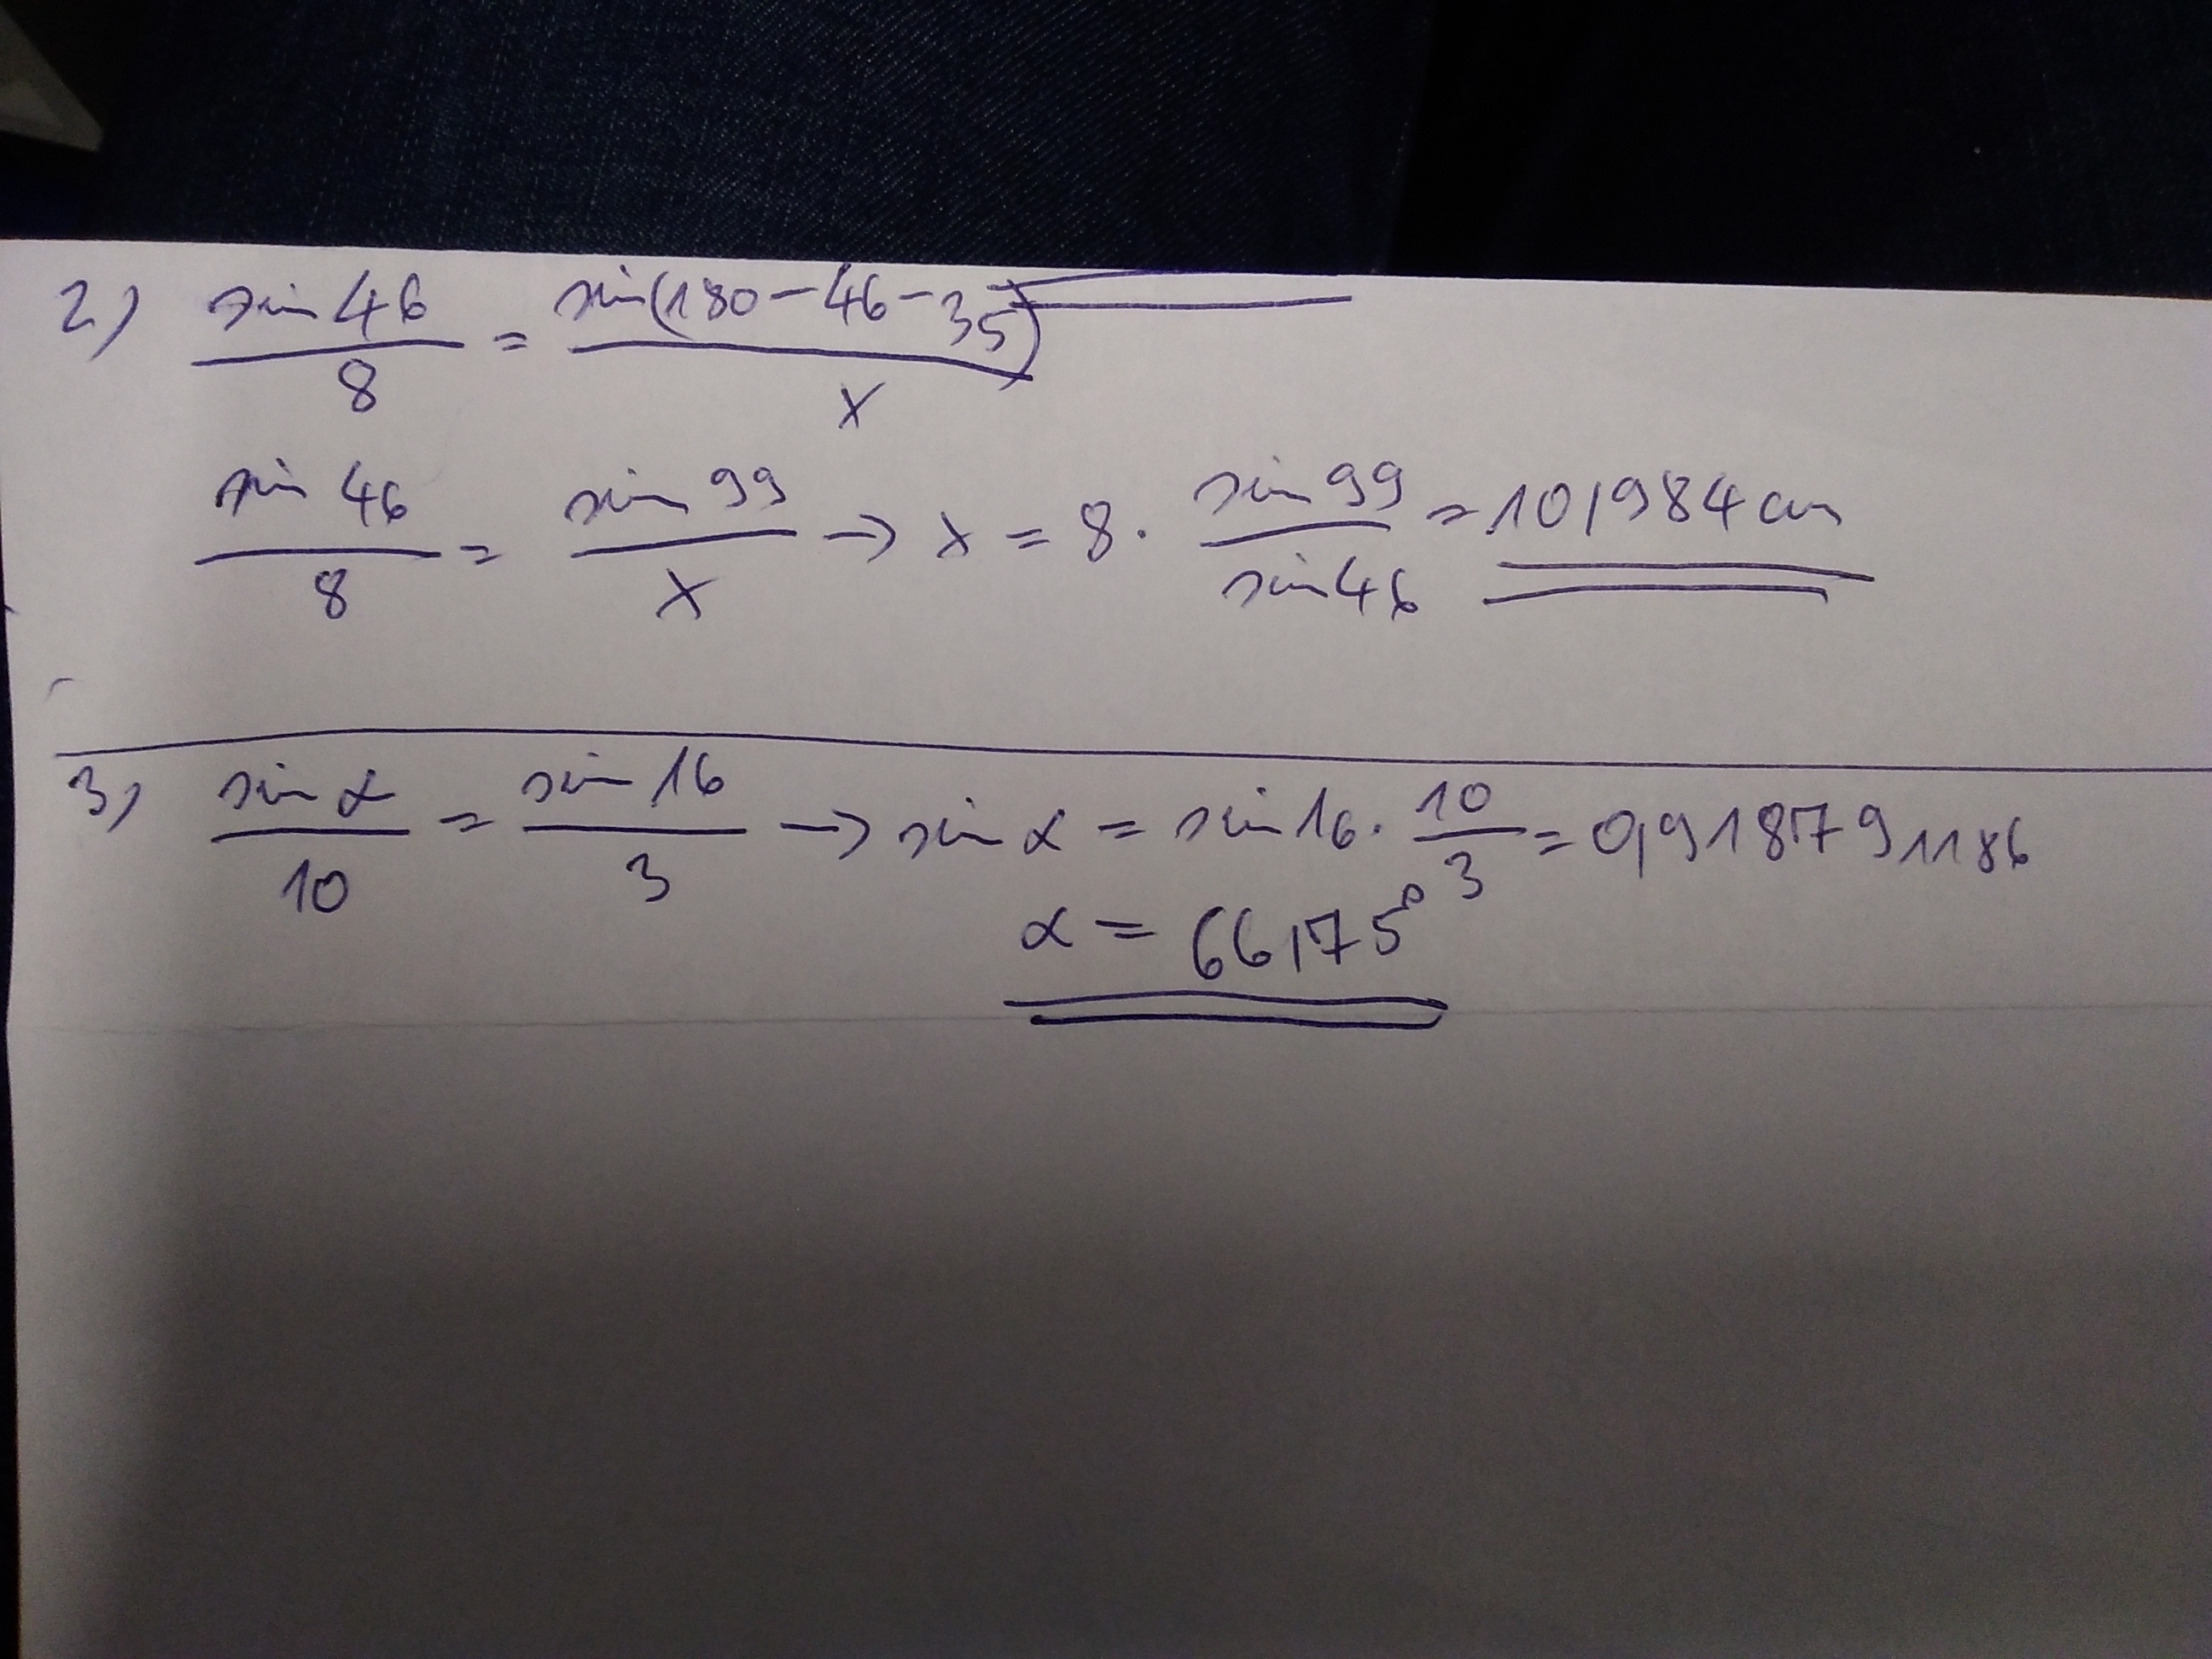 2) sin 46 / 8 = sin(180-46-35) / x
sin 46 / 8 = sin 99 / x → x = 8 · sin 99 / sin 46 = 10,984 cm
3) sin α / 10 = sin 16 / 3 → sin α = sin 16 · 10 / 3 = 0,9187791186
α = 66,75°